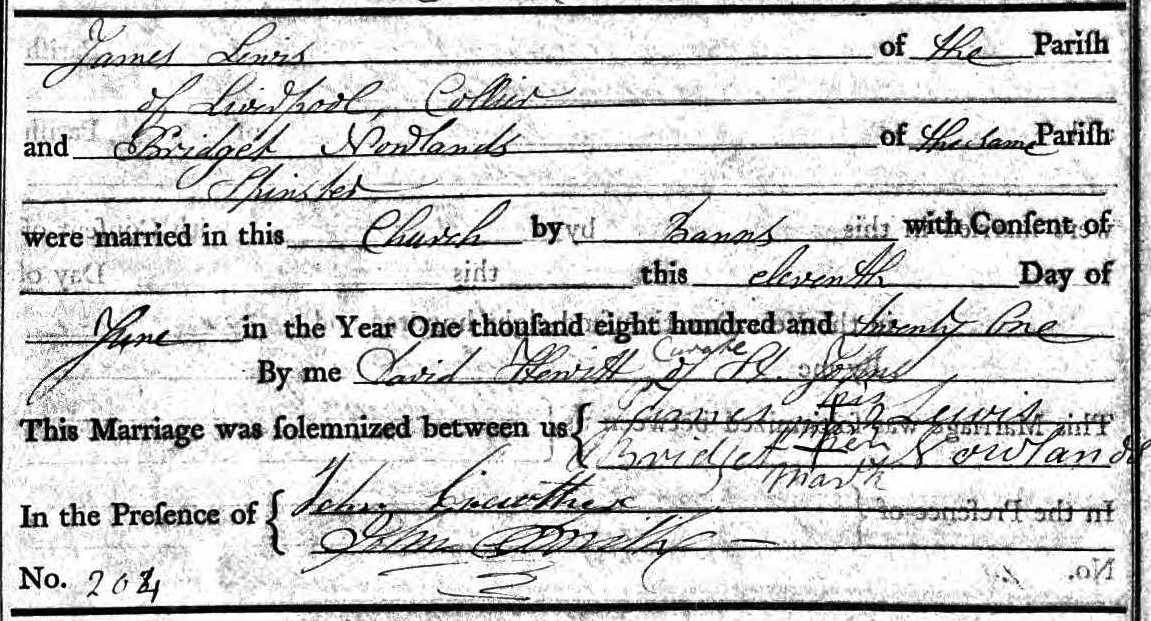 James Lewis of the Pariſh
of Liverpool, Collier
and Bridget Nowlands of the same Pariſh
Spinster
were married in this Church by Banns with Conſent of
this eleventh Day of
June in the Year One thouſand eight hundred and twenty One
By me David Hewitt Curate of St. Johns
This Marriage was ſolemnized between us { James his + Lewis
Bridget + her Nowlands
mark
In the Preſence of { John Crowther
John Smith
No. 204